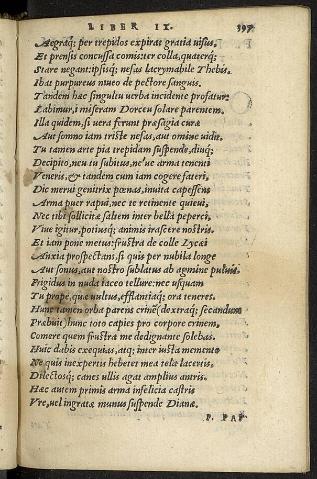 LIBER IX. 397
Aegraq; per trepidos expirat gratia uisus,
Et prensis concussa comis: ter colla, quaterq;
Stare negant: ipsisq; nefas lacrymabile Thebis.
Ibat purpureus niueo de pectore sanguis.
Tandem haec singultu uerba incidente profatur:
Labimur, i miseram Dorceu solare parentem.
Illa quidem, si uera ferunt praesagia curae
Aut somno iam triste nefas, aut omine uidit.
Tu tamen arte pia trepidam suspende, diuq;
Decipito, neu tu subitus, neue arma tenenti
Veneris, & tandem cum iam cogere fateri,
Dic merui genitrix poenas, inuita capessens
Arma puer rapui, nec te retinente quieui,
Nec tibi sollicitae saltem inter bella peperci.
Viue igitur, potiusq; animis irascere nostris.
Et iam pone metus: frustra de colle Lycaei
Anxia prospectans, si quis per nubila longe
Aut sonus, aut nostro sublatus ab agmine puluis.
Frigidus in nuda iaceo tellure: nec usquam
Tu prope, quae uultus, efflantiaq; ora teneres.
Hunc tamen orba parens crinem dextraq; secandum
Praebuit, hunc toto capies pro corpore crinem,
Comere quem frustra me dedignante solebas.
Huic dabis exequias, atq; inter iusta memento
Ne quis inexpertis hebetet mea tela lacertis.
Dilectosq; canes ullis agat amplius antris.
Haec autem primis arma infelicia castris
Vre, uel ingratae munus suspende Dianae.
P. PAP